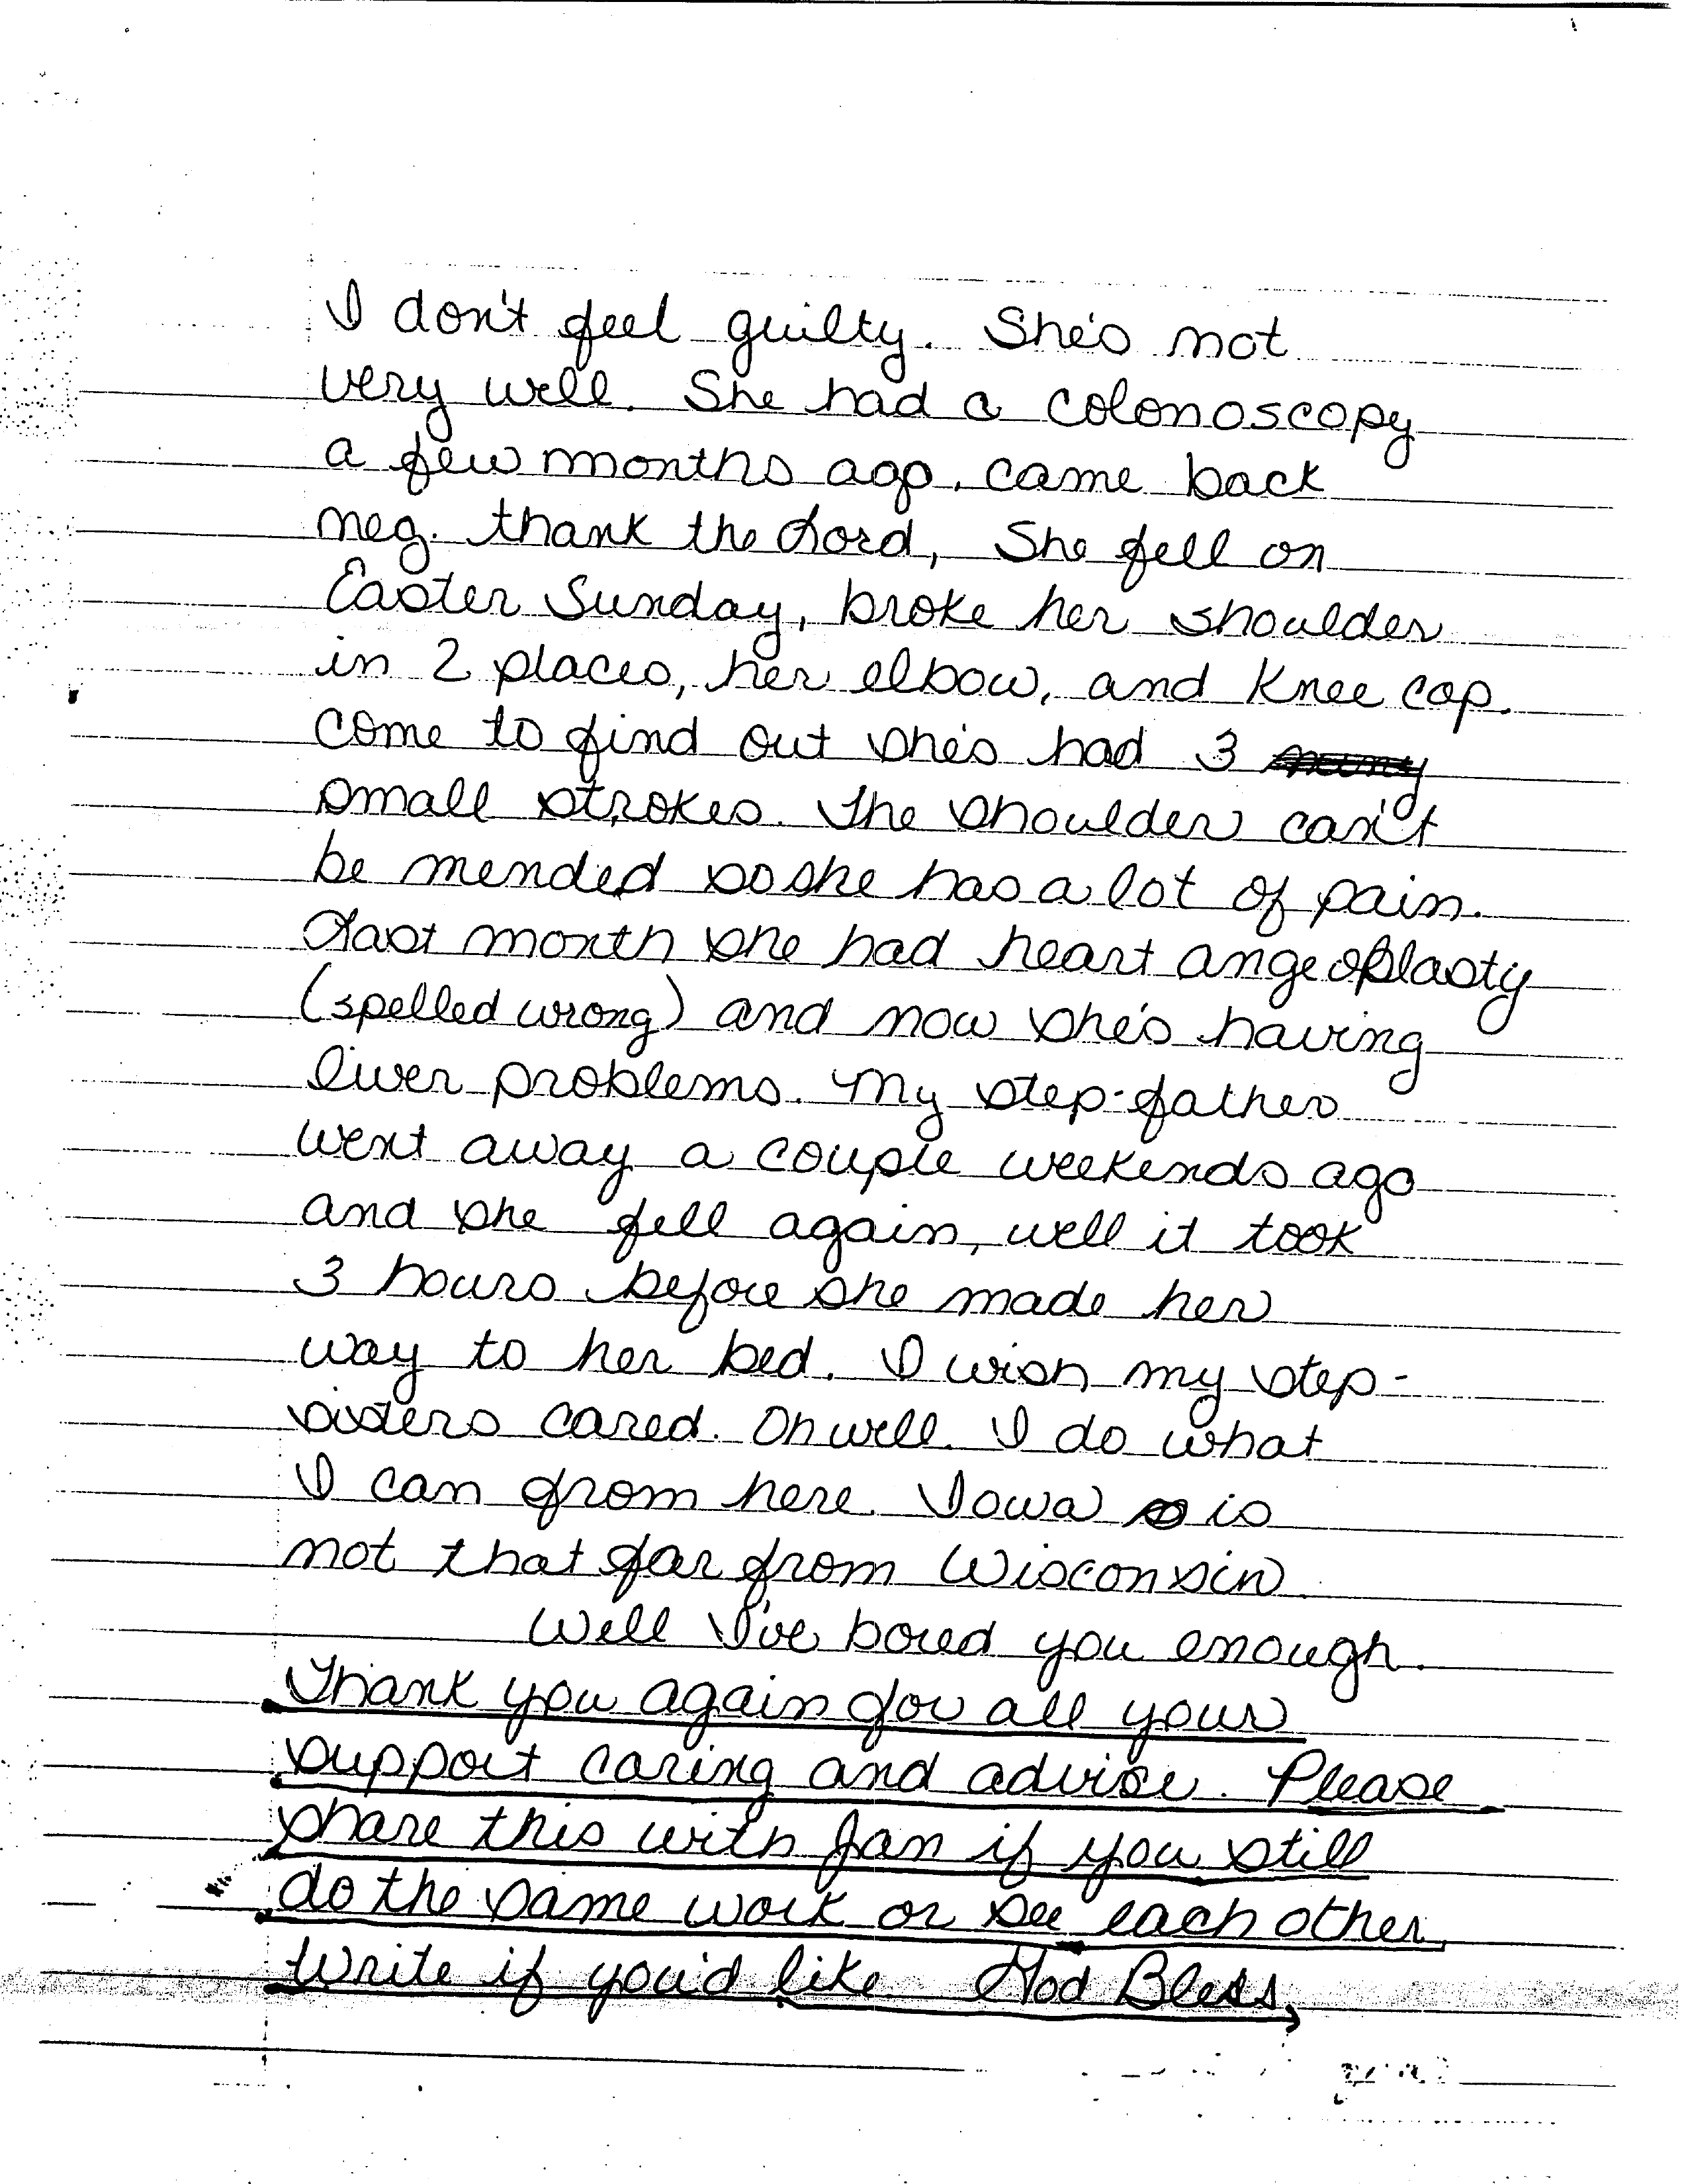 I don't feel guilty. She's not
very well. She had a colonoscopy
a few months ago, came back
neg. thank the Lord, She fell on
Easter Sunday, broke her shoulder
in 2 places, her elbow, and Knee cap.
come to find out she's had 3
small strokes. The shoulder can't
be mended so she has a lot of pain.
Last month she had heart angeoplasty
(spelled wrong) and now she's having
liver problems. My step-father
went away a couple weekends ago
and she fell again, well it took
3 hours before she made her
way to her bed. I wish my step-
sisters cared. Oh well. I do what
I can from here. Iowa is
not that far from Wisconsin.
Well I've bored you enough.
Thank you again for all your
support caring and advise. Please
share this with Jan if you still
do the same work or see each other.
Write if you'd like. God Bless,